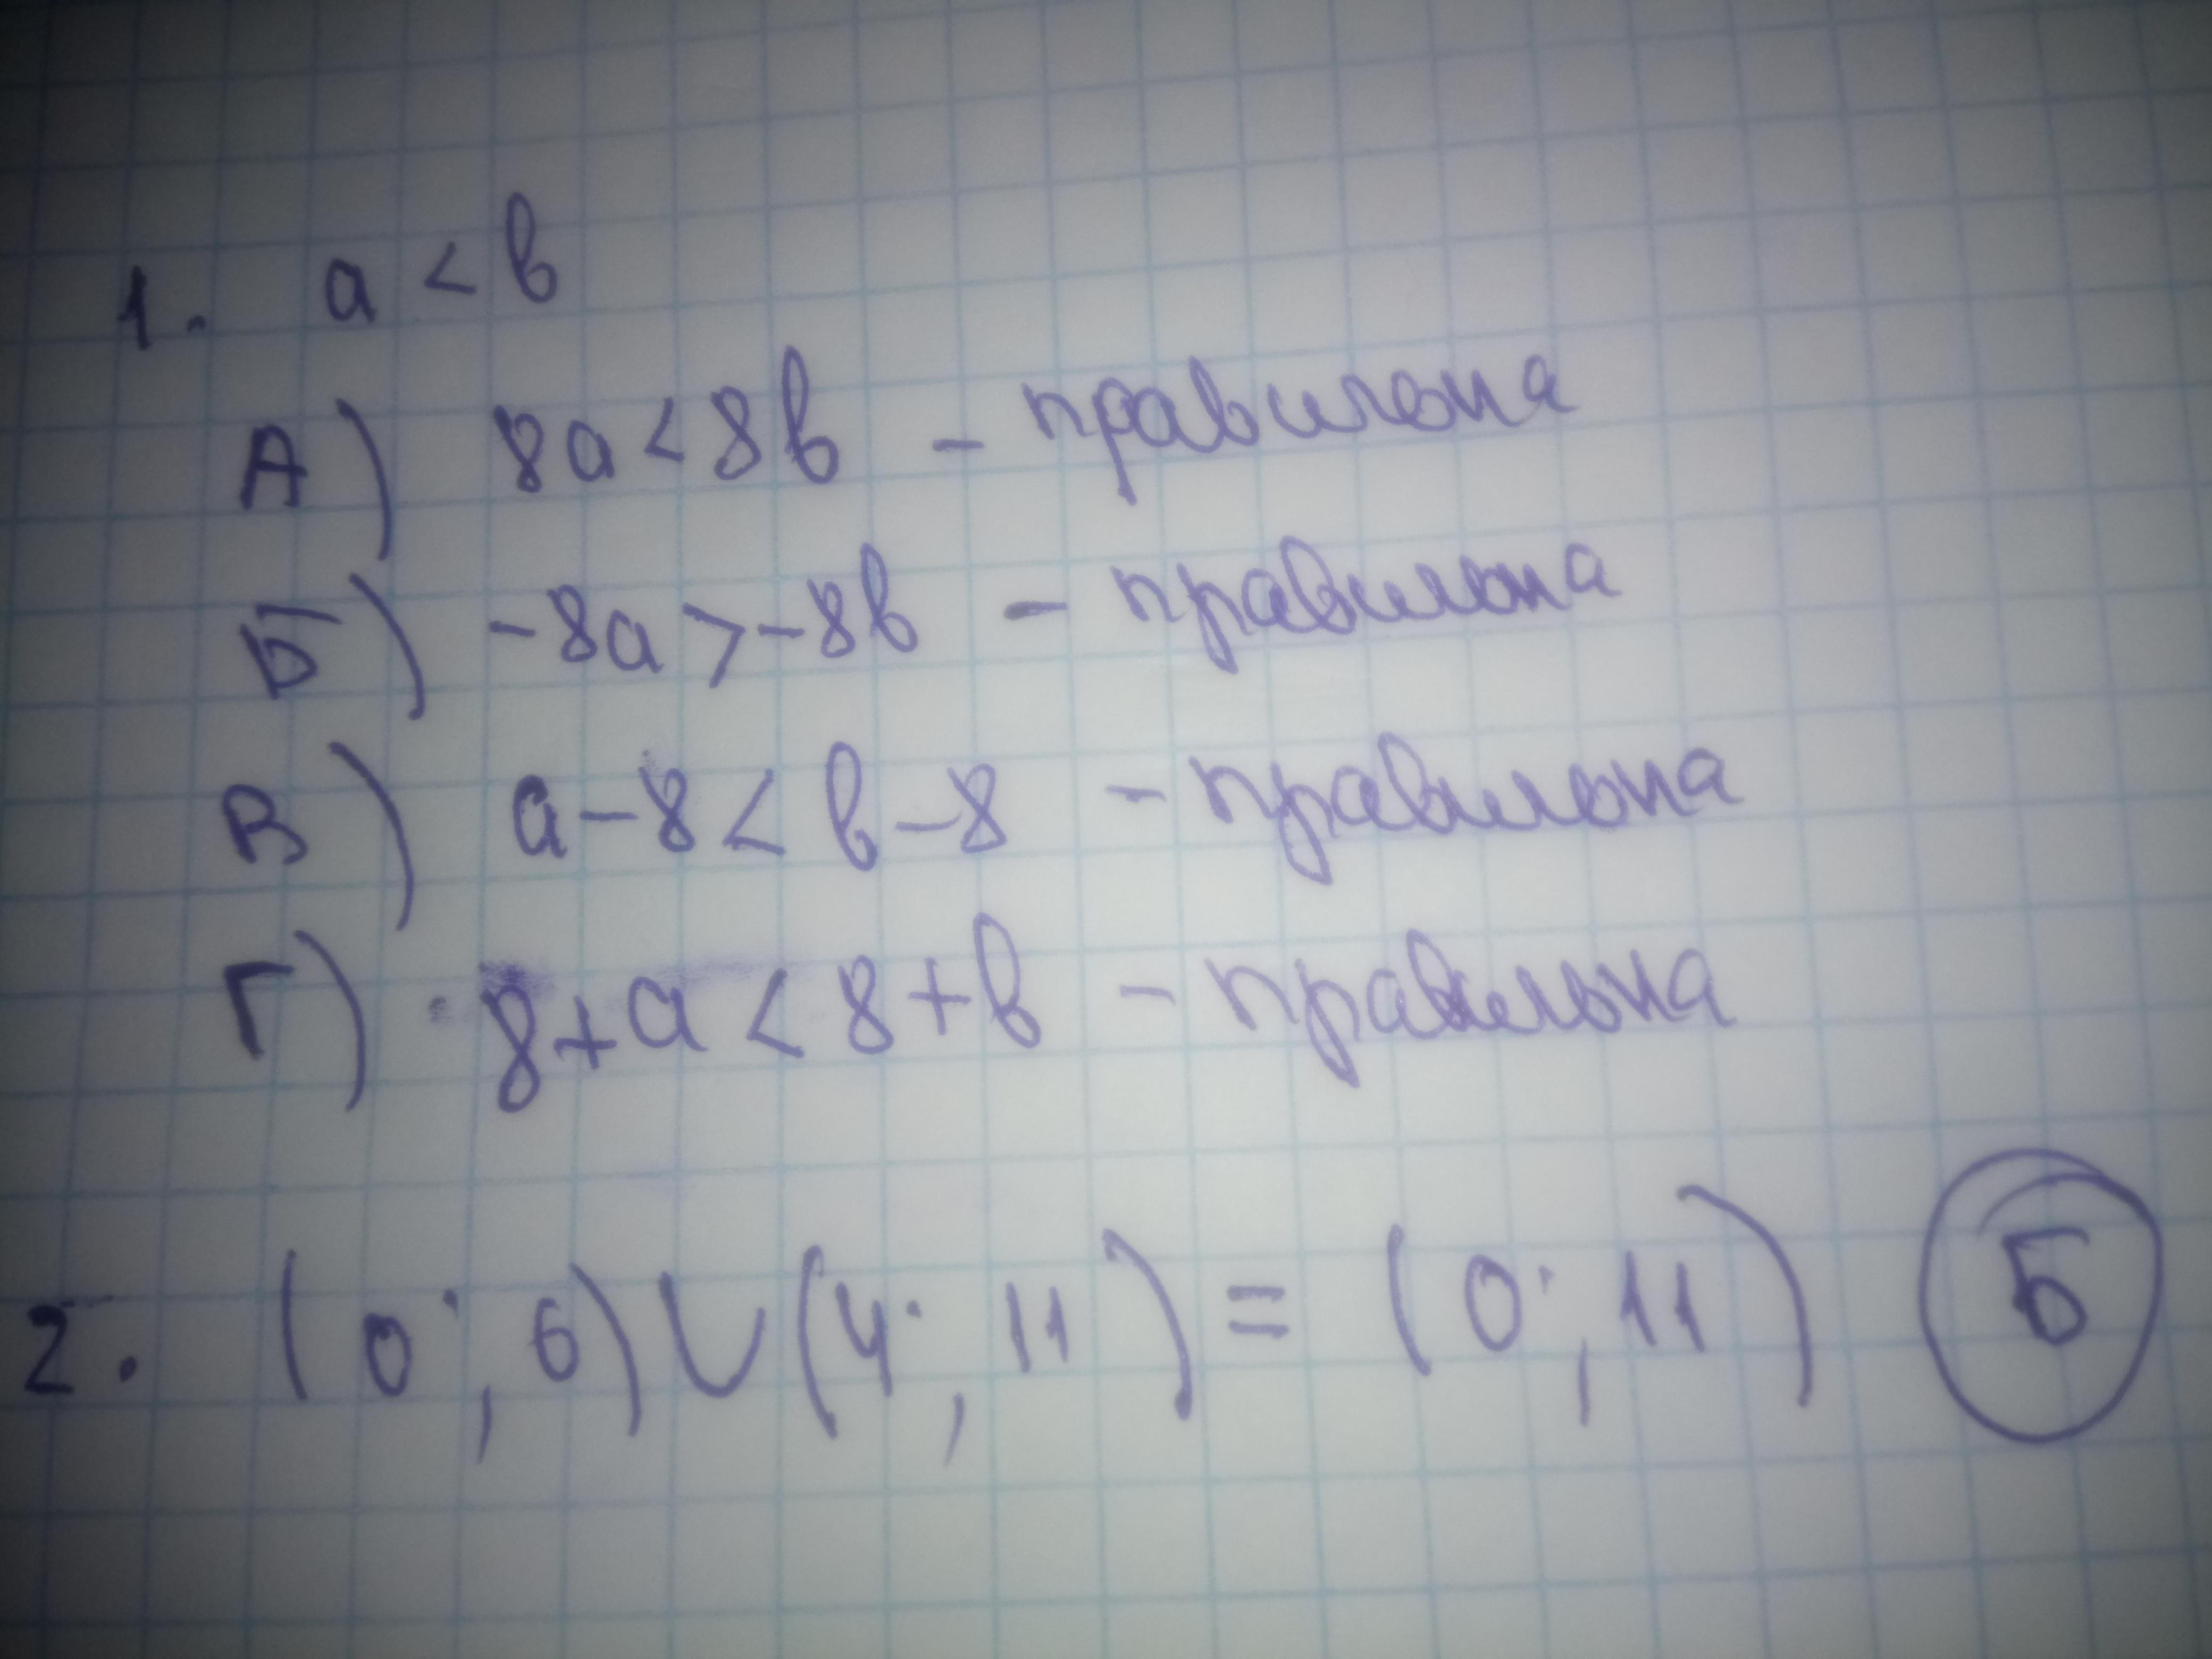 1. a < b
А) 8a < 8b - правильна
Б) -8a > -8b - правильна
В) a - 8 < b - 8 - правильна
Г) 8 + a < 8 + b - правильна
2. (0; 6) ∪ (4; 11) = (0; 11) Б